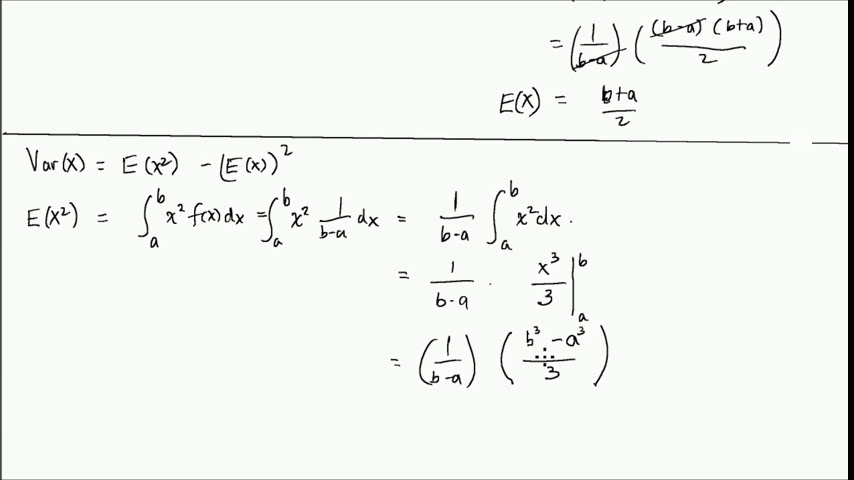 = (1/(b-a)) ((b-a)(b+a)/2)
E(X) = b+a/2
Var(X) = E(X²) - (E(X))²
E(X²) = ∫ₐᵇ x² f(x)dx = ∫ₐᵇ x² 1/(b-a) dx = 1/(b-a) ∫ₐᵇ x²dx.
= 1/(b-a) · x³/3 |ₐᵇ
= (1/(b-a)) (b³-a³/3)